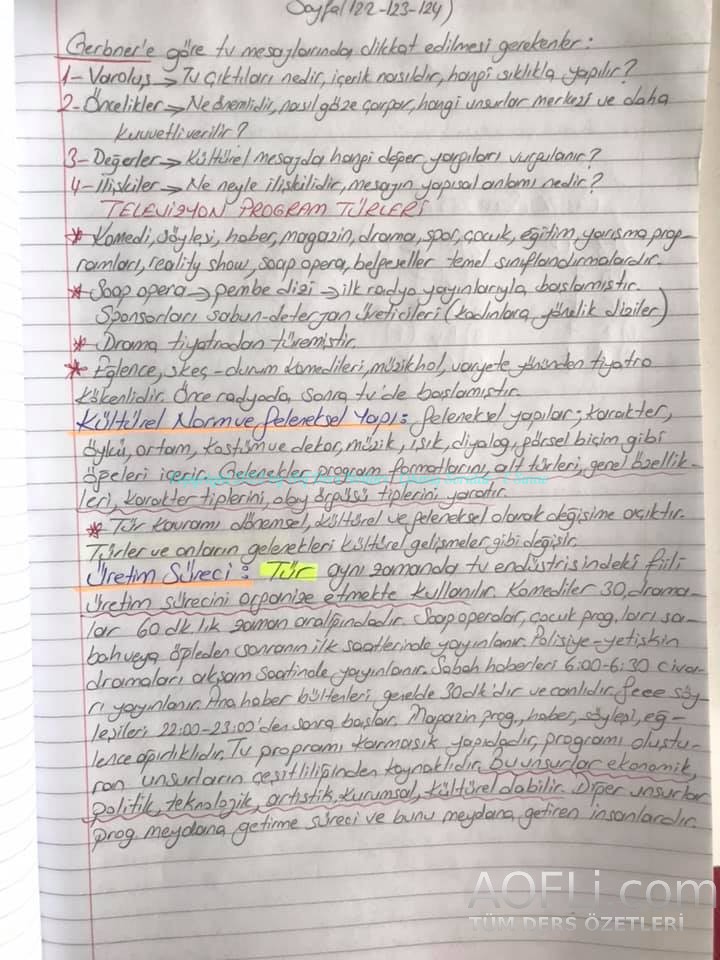 Sayfa(122-123-124)
Gerbner'e göre tv mesajlarında dikkat edilmesi gerekenler:
1- Varoluş → Tv çıktıları nedir, içerik nasıldır, hangi sıklıkla yapılır?
2- Öncelikler → Ne önemlidir, nasıl göze çarpar, hangi unsurlar merkezi ve daha
kuvvetli verilir?
3- Değerler → Kültürel mesajda hangi değer yargıları vurgulanır?
4- İlişkiler → Ne neyle ilişkilidir, mesajın yapısal anlamı nedir?
TELEVİZYON PROGRAM TÜRLERİ
* Komedi, söyleşi, haber, magazin, drama, spor, çocuk, eğitim, yarışma prog-
ramları, reality show, soap opera, belgeseller temel sınıflandırmalardır.
* Soap opera → pembe dizi → ilk radyo yayınlarıyla başlamıştır.
Sponsorları sabun-deterjan üreticileri (kadınlara yönelik diziler)
* Drama tiyatrodan türemiştir.
* Eğlence, skeç-durum komedileri, müzikhol, varyete yönünden tiyatro
kökenlidir. Önce radyoda, sonra tv'de başlamıştır.
Kültürel Norm ve Geleneksel Yapı: Geleneksel yapılar; karakter,
öykü, ortam, kostüm ve dekor, müzik, ışık, diyalog, görsel biçim gibi
öğeleri içerir. Gelenekler program formatlarını, alt türleri, genel özellik-
leri, karakter tiplerini, olay örgüsü tiplerini yaratır.
* Tür kavramı dönemsel, kültürel ve geleneksel olarak değişime açıktır.
Türler ve onların gelenekleri kültürel gelişmeler gibi değişir.
Üretim Süreci: Tür aynı zamanda tv endüstrisindeki fiili
üretim sürecini organize etmekte kullanılır. Komediler 30, drama-
lar 60 dk.lık zaman aralığındadır. Soap operalar, çocuk prog.ları sa-
bah veya öğleden sonranın ilk saatlerinde yayınlanır. Polisiye-yetişkin
dramaları akşam saatinde yayınlanır. Sabah haberleri 6:00-6:30 civa-
rı yayınlanır. Ana haber bültenleri genelde 30dk'dır ve canlıdır. Gece söy-
leşileri 22:00-23:00'den sonra başlar. Magazin prog, haber, söyleşi, eğ-
lence ağırlıklıdır. Tv programı karmaşık yapıdadır, programı oluştu-
ran unsurların çeşitliliğinden kaynaklıdır. Bu unsurlar ekonomik,
politik, teknolojik, artistik, kurumsal, kültürel olabilir. Diğer unsurlar
prog meydana getirme süreci ve bunu meydana getiren insanlardır.
AOFLi.com
TÜM DERS ÖZETLERİ